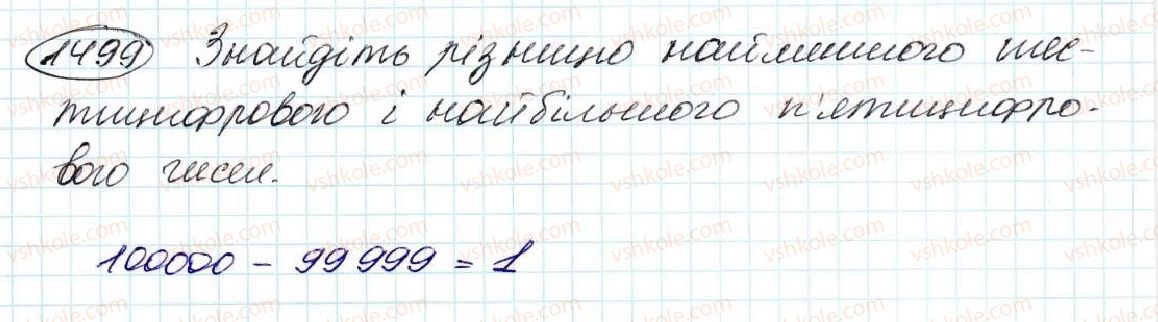 1499 Знайдіть різницю найменшого шес-
тицифрового і найбільшого п'ятицифро-
вого чисел.
100000 - 99 999 = 1